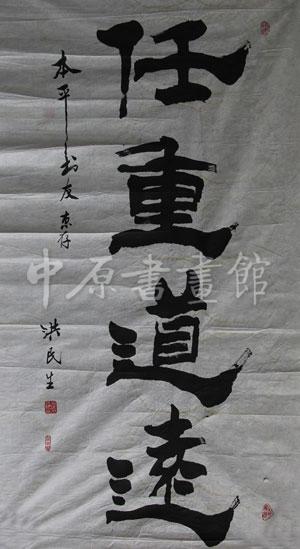 任重道遠
本平書友惠存
洪民生
中原書畫館